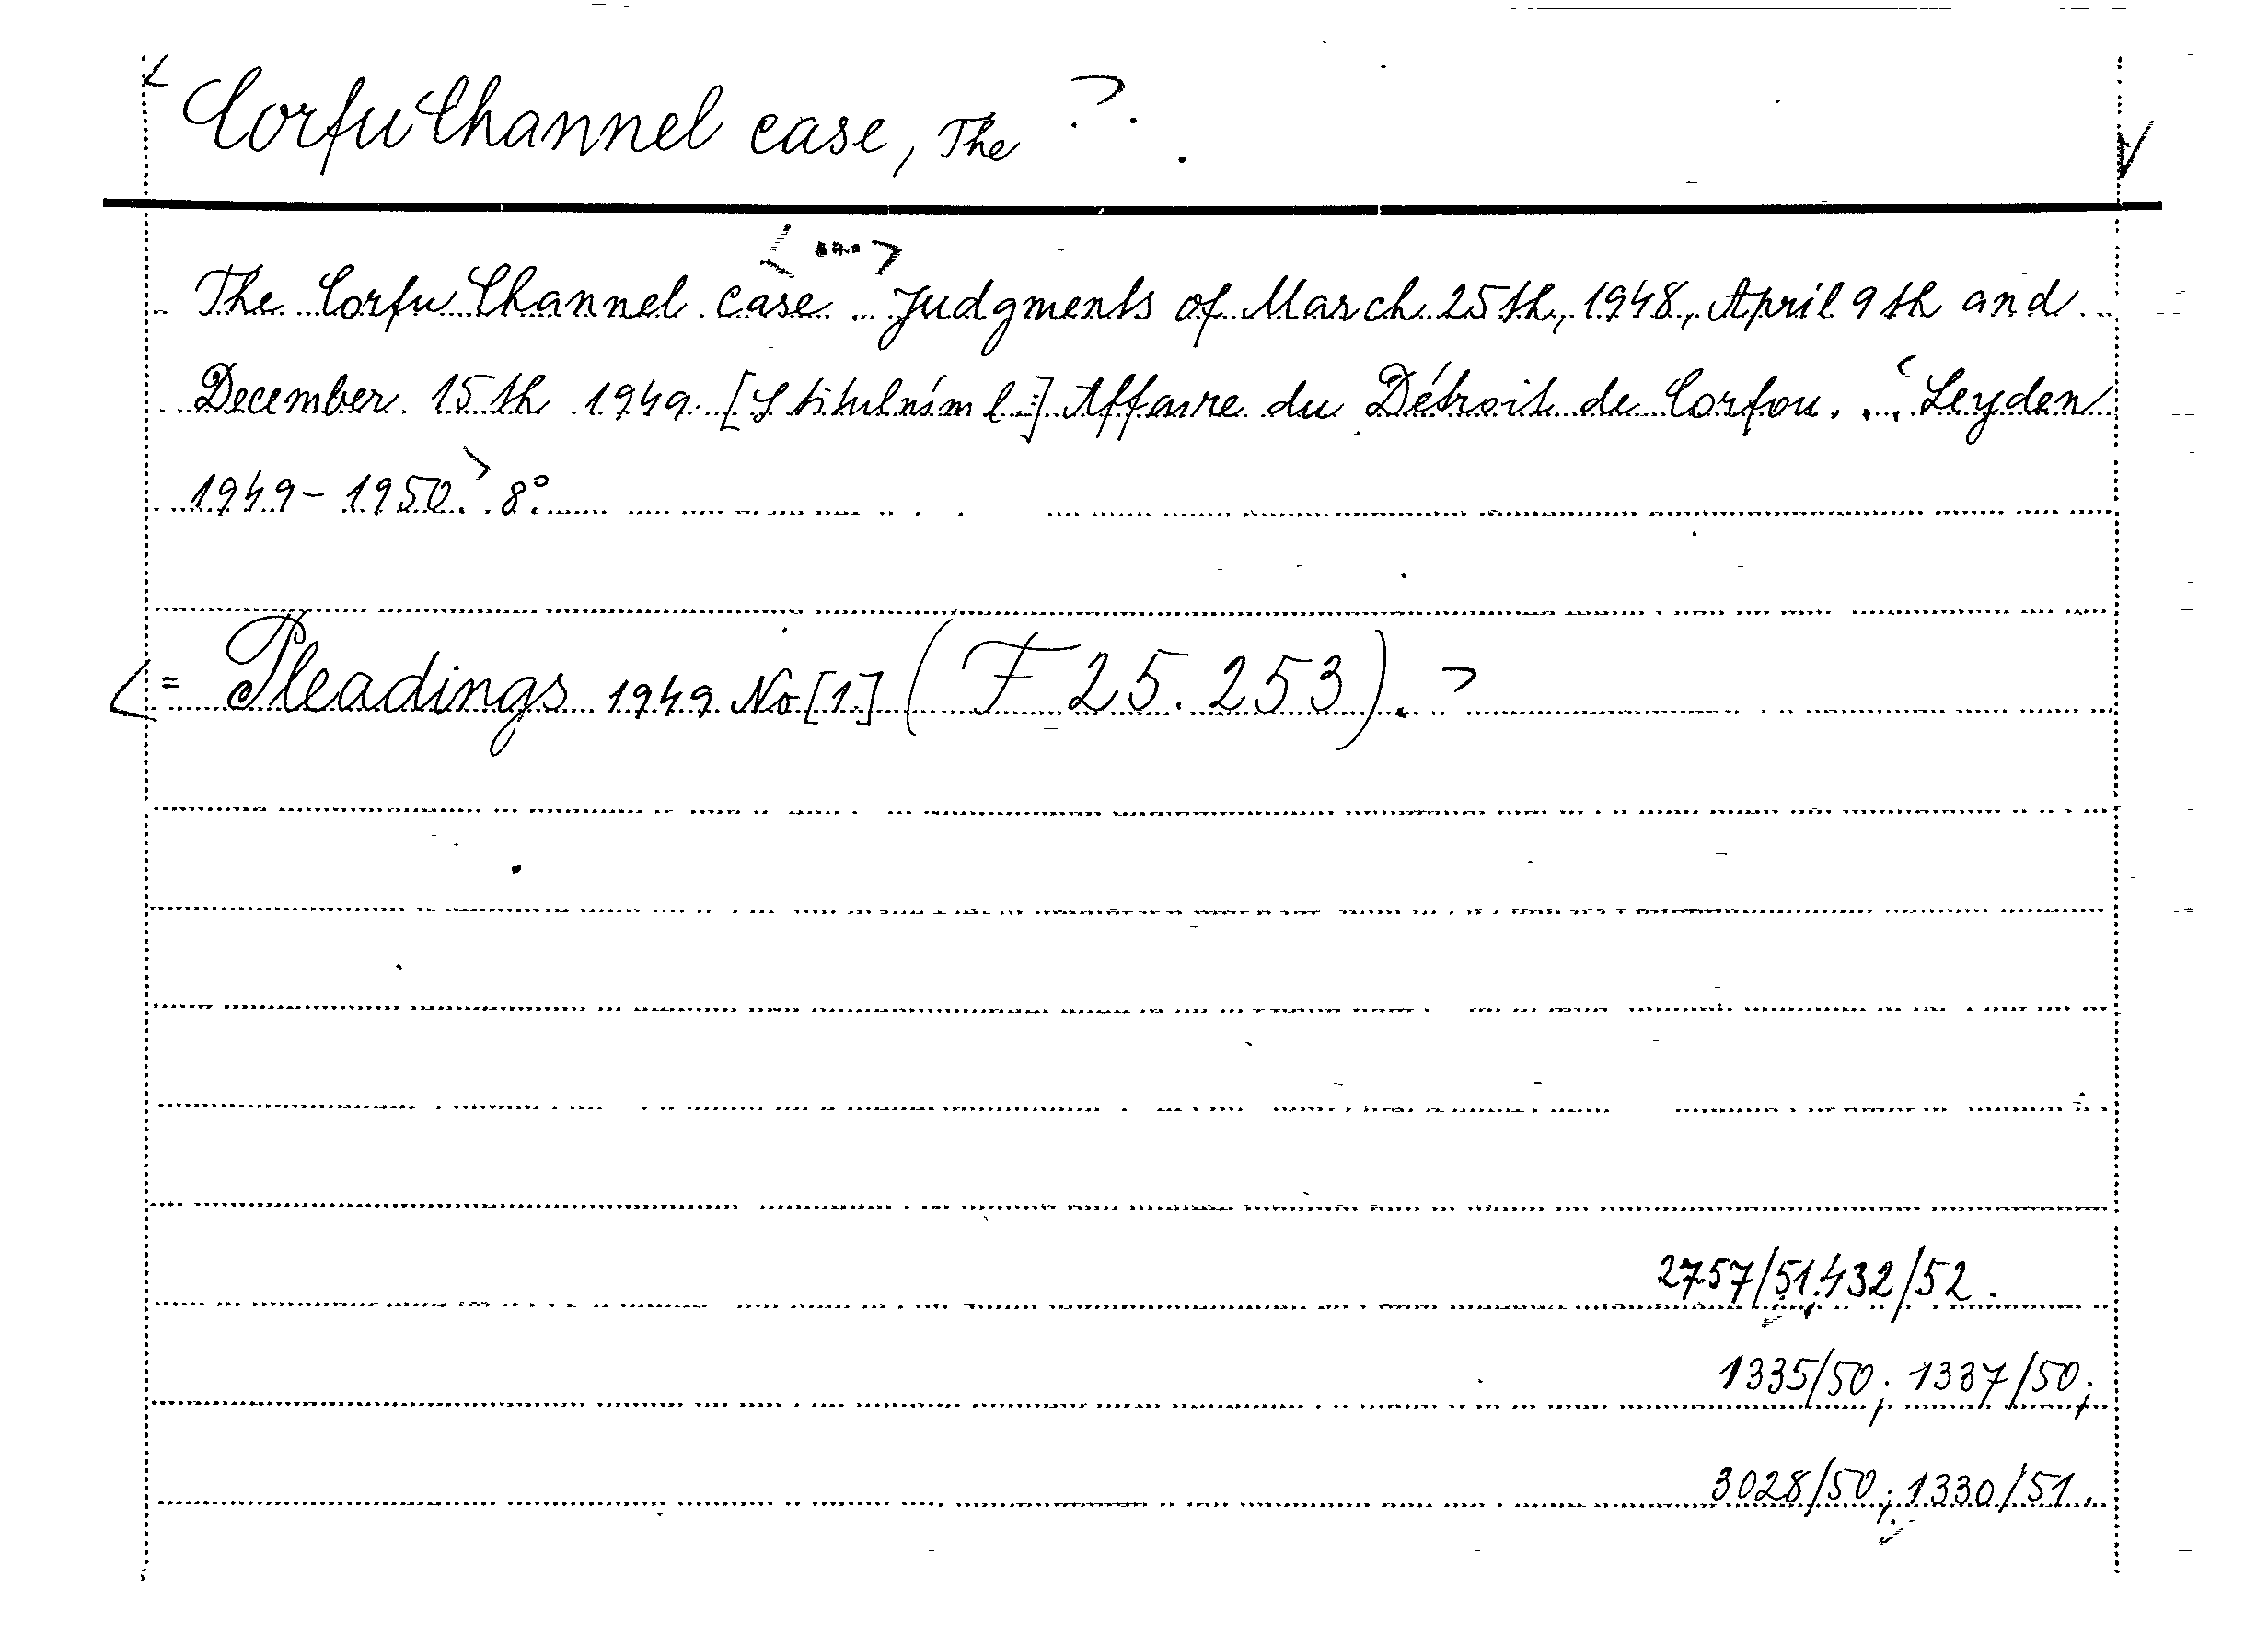 Corfu Channel case, The
The Corfu Channel case. Judgments of March 25th, 1948, April 9th and
December 15th 1949. [S titulním l.:] Affaire du Détroit de Corfou. . . Leyden
1949-1950. 8°.
= Pleadings 1949 No [1.] (F 25.253).
2757/51. 432/52.
1335/50; 1337/50;
3028/50; 1330/51.